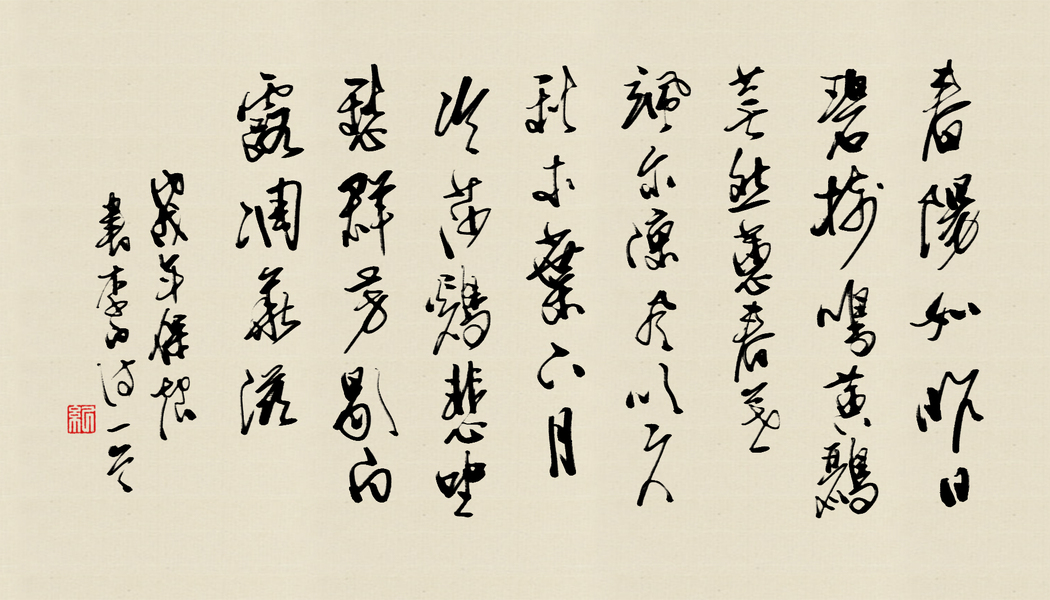 春陽如昨日
碧樹鳴黃鸝
蕪然蕙春暮
颯尔涼風吹天
秋木葉下月
冷莎鷄悲坐
愁群芳歇白
露凋華滋
戊戌年
書李白詩一首